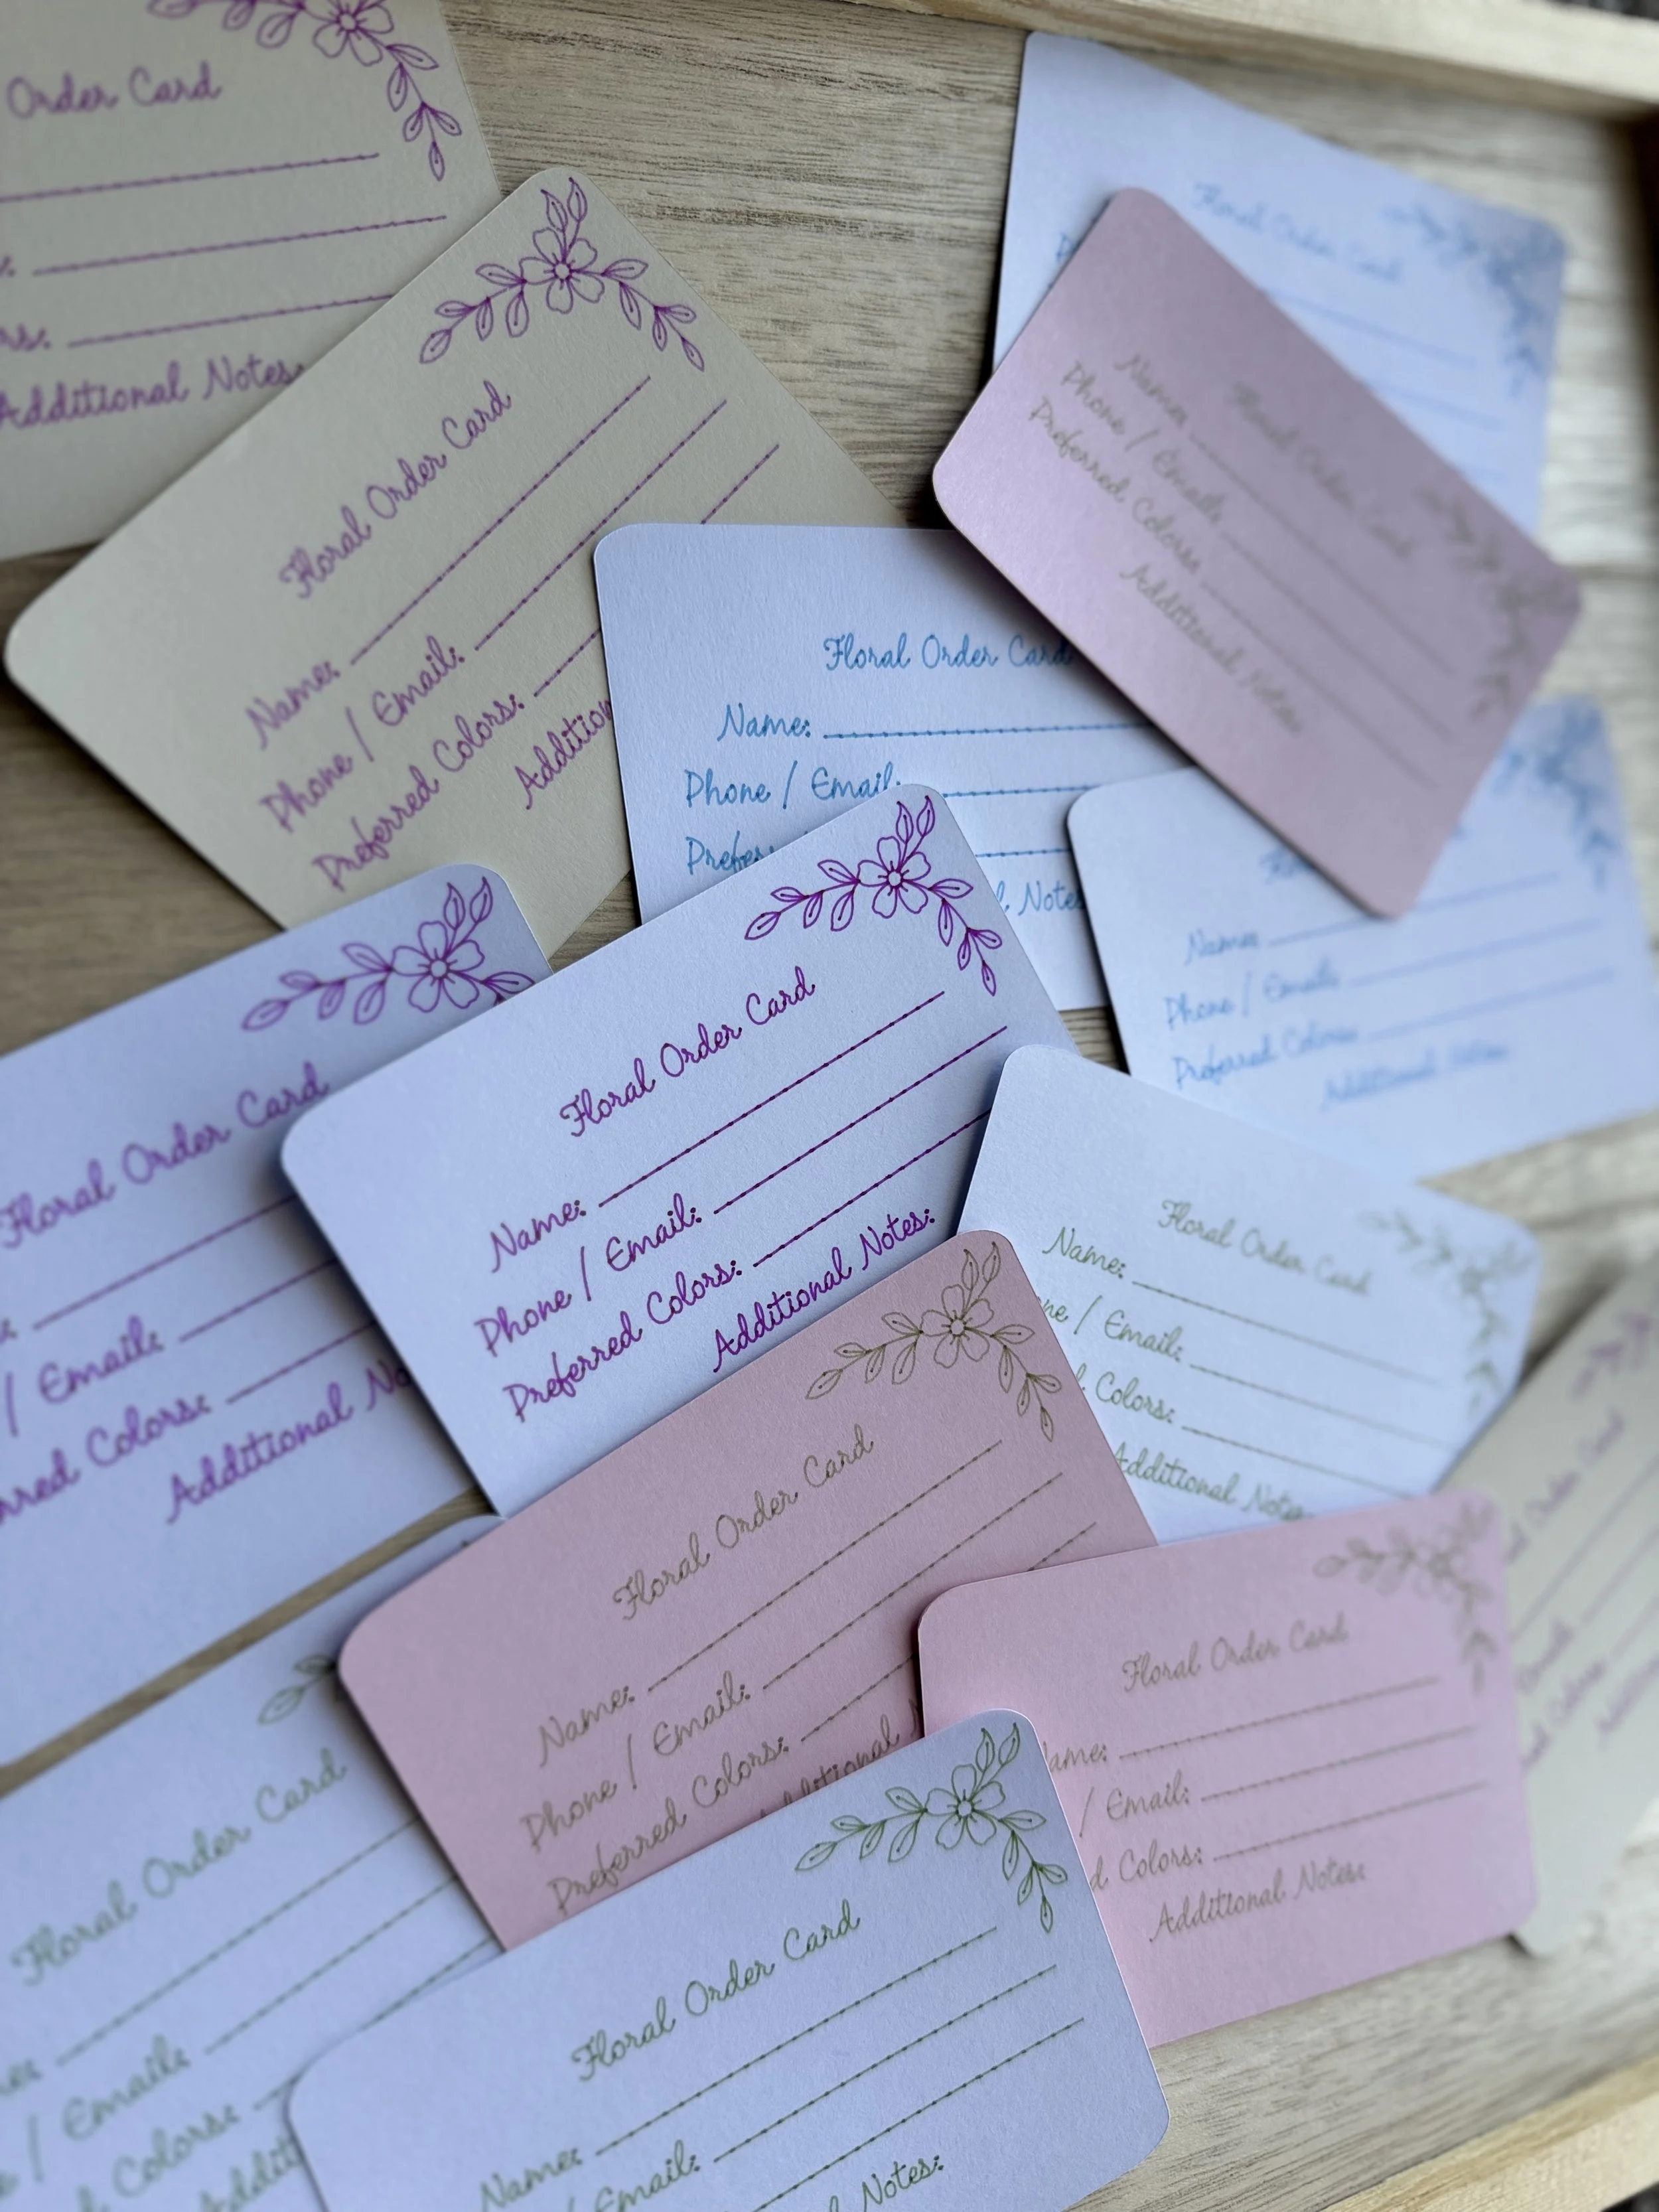 Order Card
Additional Notes:
Floral Order Card
Name:
Phone / Email:
Preferred Colors:
Addition
Floral Order Card
Floral Order Card
Name:
Phone / Email:
Preferred Colors:
Additional Notes:
Floral Order Card
Name:
Phone / Email:
Prefer
l Notes
Name:
Phone / Email:
Preferred Colors:
Additional Notes:
Floral Order Card
Email:
rred Colors:
Additional No
Floral Order Card
Name:
Phone / Email:
Preferred Colors:
Additional Notes:
Floral Order Card
Name:
ne / Email:
l Colors:
Additional Notes
Floral Order Card
Name:
Phone / Email:
Preferred Colors:
Additional
Floral Order Card
ame:
/ Email:
d Colors:
Additional Notes:
Order Card
Floral Order Card
/ Email:
Colors:
Addit
Floral Order Card
Name:
/ Email:
Notes: